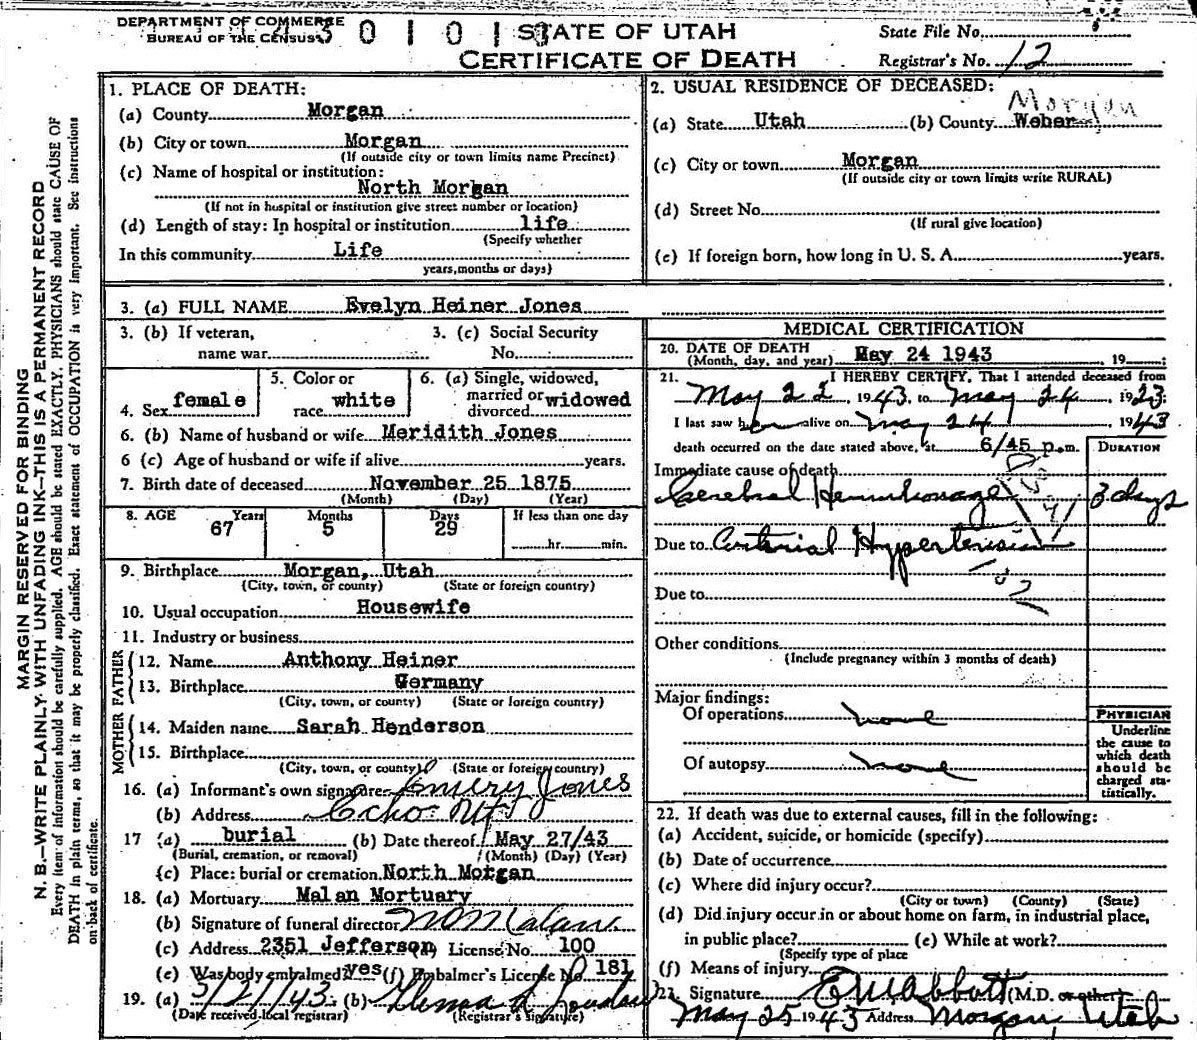 DEPARTMENT OF COMMERCE
BUREAU OF THE CENSUS
STATE OF UTAH
CERTIFICATE OF DEATH
State File No.
Registrar's No. 12
MARGIN RESERVED FOR BINDING
N. B.—WRITE PLAINLY WITH UNFADING INK—THIS IS A PERMANENT RECORD
Every item of information should be carefully supplied. AGE should be stated EXACTLY. PHYSICIANS should state CAUSE OF
DEATH in plain terms, so that it may be properly classified. Exact statement of OCCUPATION is very important. See instructions
on back of certificate.
1. PLACE OF DEATH:
(a) County Morgan
(b) City or town Morgan
(If outside city or town limits name Precinct)
(c) Name of hospital or institution:
North Morgan
(If not in hospital or institution give street number or location)
(d) Length of stay: In hospital or institution life
(Specify whether
In this community Life
years, months or days)
2. USUAL RESIDENCE OF DECEASED:
Morgan
(a) State Utah (b) County Weber
(c) City or town Morgan
(If outside city or town limits write RURAL)
(d) Street No.
(If rural give location)
(e) If foreign born, how long in U. S. A. years.
3. (a) FULL NAME Evelyn Heiner Jones
3. (b) If veteran, name war
3. (c) Social Security No.
4. Sex female
5. Color or race white
6. (a) Single, widowed, married or divorced widowed
6. (b) Name of husband or wife Meridith Jones
6 (c) Age of husband or wife if alive years.
7. Birth date of deceased November 25 1875
(Month) (Day) (Year)
8. AGE Years Months Days If less than one day
67 5 29 hr. min.
9. Birthplace Morgan, Utah
(City, town, or county) (State or foreign country)
10. Usual occupation Housewife
11. Industry or business
FATHER
12. Name Anthony Heiner
13. Birthplace Germany
(City, town, or county) (State or foreign country)
MOTHER
14. Maiden name Sarah Henderson
15. Birthplace
(City, town, or county) (State or foreign country)
16. (a) Informant's own signature Emery Jones
(b) Address Echo Ut
17 (a) burial (b) Date thereof May 27/43
(Burial, cremation, or removal) (Month) (Day) (Year)
(c) Place: burial or cremation North Morgan
18. (a) Mortuary Malan Mortuary
(b) Signature of funeral director Malan
(c) Address 2351 Jefferson License No. 100
(e) Was body embalmed? yes (f) Embalmer's License No. 181
19. (a) 5/27/43 (b)
(Date received local registrar) (Registrar's signature)
MEDICAL CERTIFICATION
20. DATE OF DEATH
(Month, day, and year) May 24 1943 , 19 ;
21. I HEREBY CERTIFY, That I attended deceased from
May 22, 1943, to May 24, 1923;
I last saw her alive on May 24 1943
death occurred on the date stated above, at 6/45 p.m.
DURATION
Immediate cause of death
Cerebral Hemorrhage 3 days
Due to Arterial Hypertension
Due to
Other conditions
(Include pregnancy within 3 months of death)
Major findings:
Of operations none
Of autopsy none
PHYSICIAN
Underline
the cause to
which death
should be
charged sta-
tistically.
22. If death was due to external causes, fill in the following:
(a) Accident, suicide, or homicide (specify)
(b) Date of occurrence
(c) Where did injury occur?
(City or town) (County) (State)
(d) Did injury occur in or about home on farm, in industrial place,
in public place? (e) While at work?
(Specify type of place
(f) Means of injury
23. Signature Abbott (M.D. or other)
May 25 1943 Address Morgan, Utah